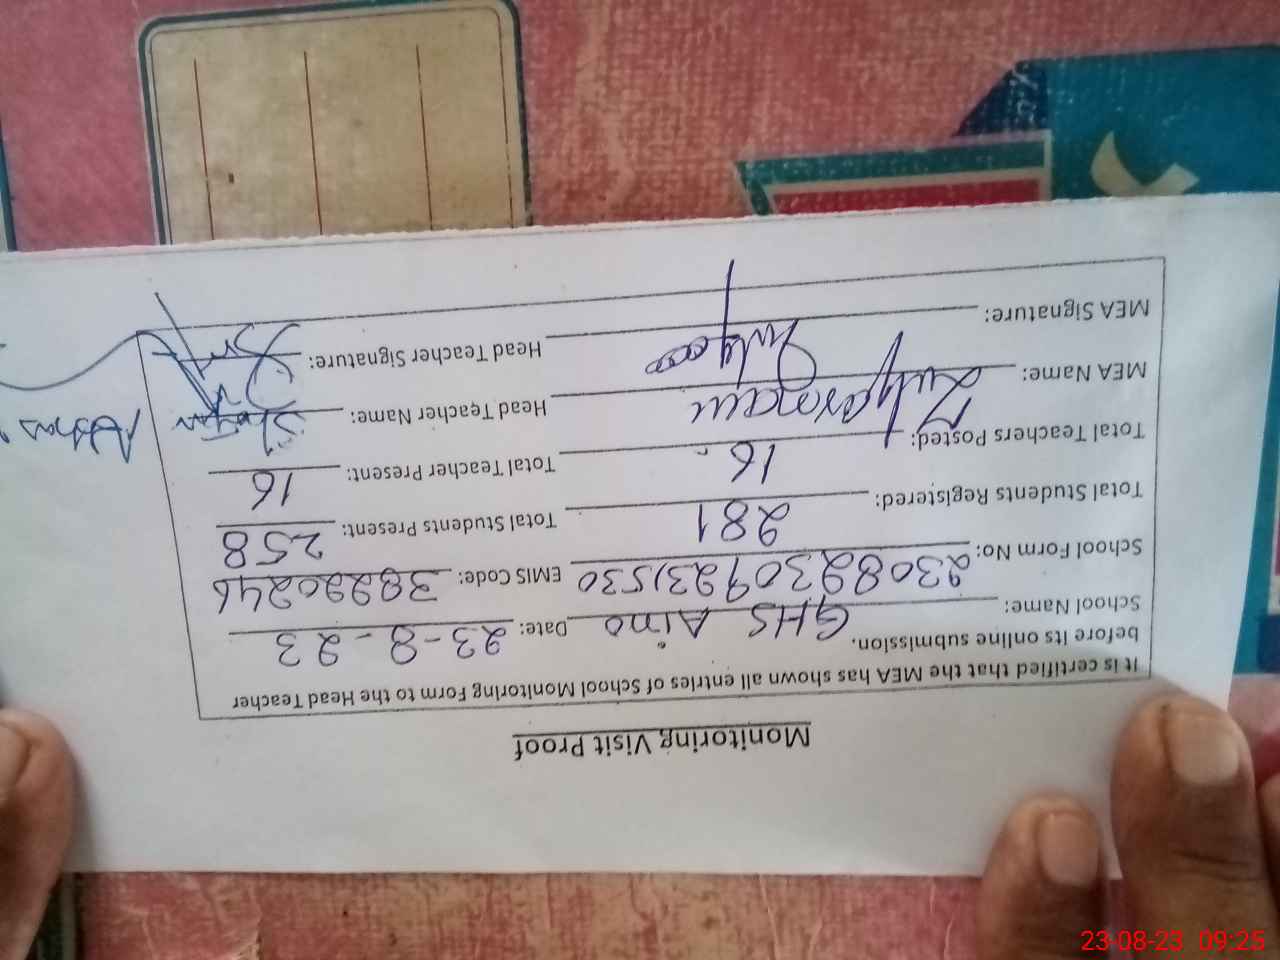 Monitoring Visit Proof
It is certified that the MEA has shown all entries of School Monitoring Form to the Head Teacher
before its online submission.
School Name: GHS Aino Date: 23-8-23
School Form No: 23082309231530 EMIS Code: 38220246
Total Students Registered: 281 Total Students Present: 258
Total Teachers Posted: 16 Total Teacher Present: 16
MEA Name: Head Teacher Name:
MEA Signature: Head Teacher Signature:
23-08-23 09:25